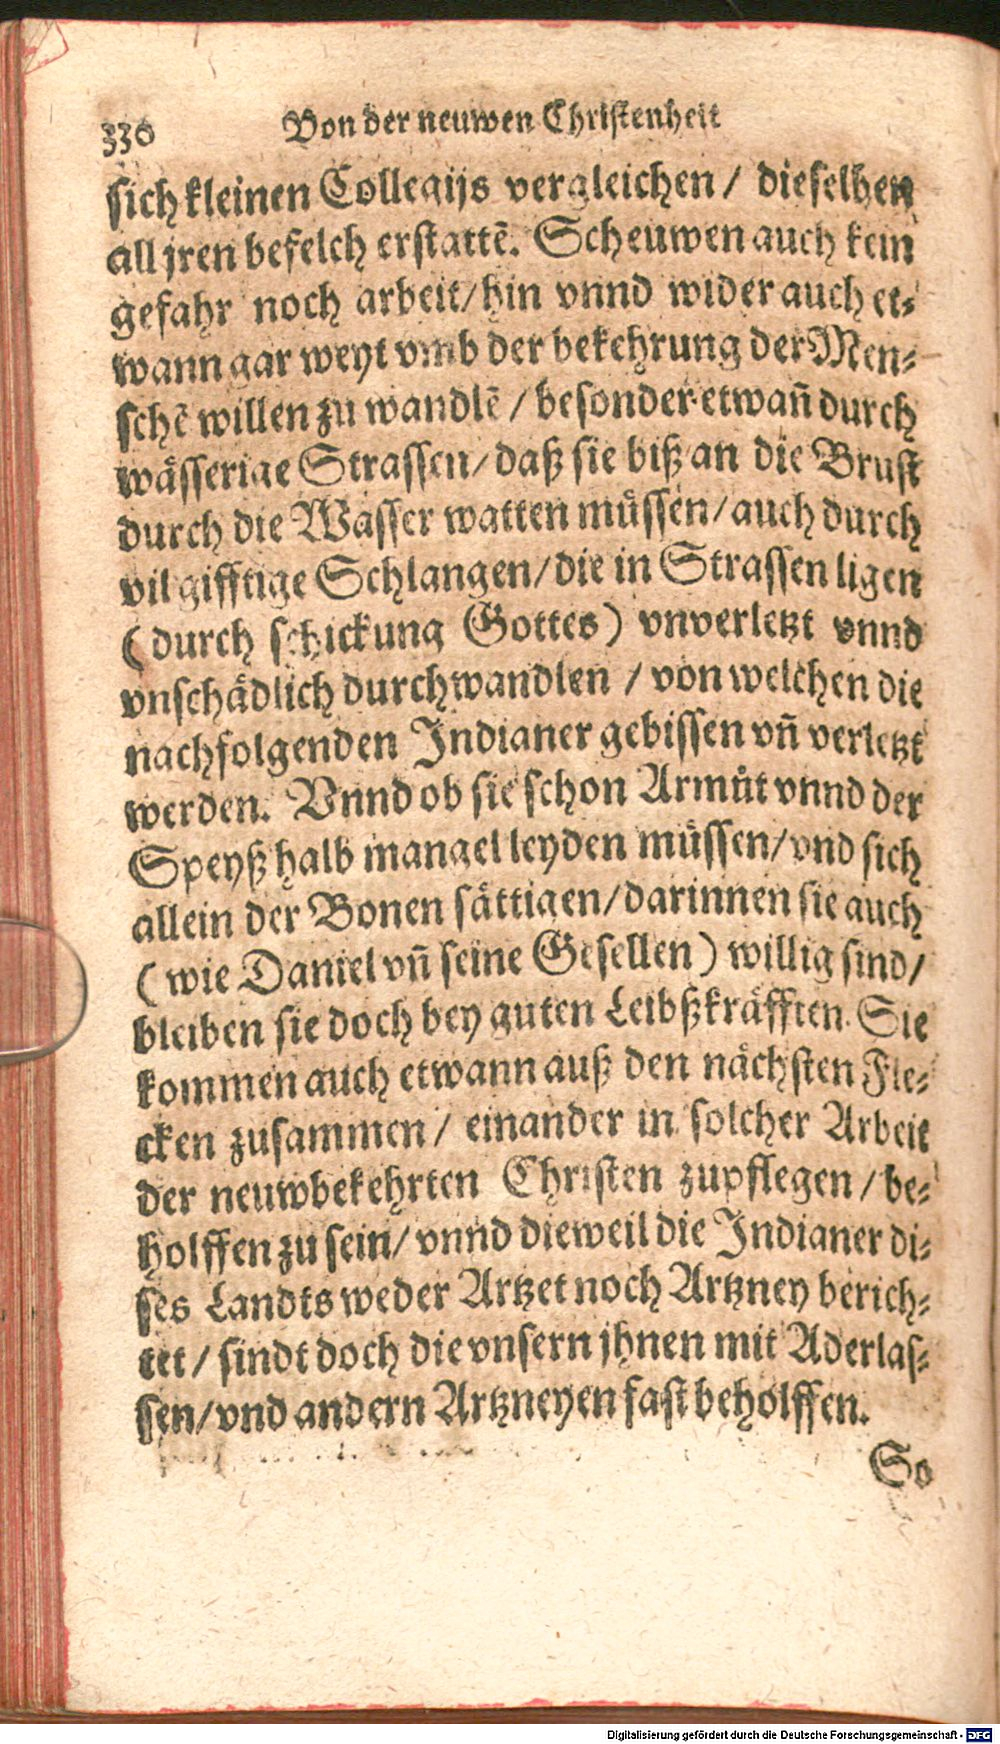 330 Von der neuwen Christenheit
sich kleinen Collegijs vergleichen / dieselben
all jren befelch erstattē. Scheuwen auch kein
gefahr noch arbeit/hin vnnd wider auch et⸗
wann gar weyt vmb der bekehrung der Men⸗
schē willen zu wandlē / besonder etwañ durch
wässerige Strassen/daß sie biß an die Brust
durch die Wasser watten müssen/auch durch
vil gifftige Schlangen/die in Strassen ligen
(durch schickung Gottes) vnverletzt vnnd
vnschädlich durchwandlen / von welchen die
nachfolgenden Indianer gebissen vñ verletzt
werden. Vnnd ob sie schon Armůt vnnd der
Speyß halb mangel leyden müssen/vnd sich
allein der Bonen sättigen/darinnen sie auch
(wie Daniel vñ seine Gesellen) willig sind/
bleiben sie doch bey guten Leibßkräfften. Sie
kommen auch etwann auß den nächsten Fle⸗
cken zusammen/ einander in solcher Arbeit
der neuwbekehrten Christen zupflegen/be⸗
holffen zu sein/vnnd dieweil die Indianer di⸗
ses Landts weder Artzet noch Artzney berich⸗
tet/ sindt doch die vnsern jhnen mit Aderlas⸗
sen/vnd andern Artzneyen fast beholffen.
So
Digitalisierung gefördert durch die Deutsche Forschungsgemeinschaft - DFG